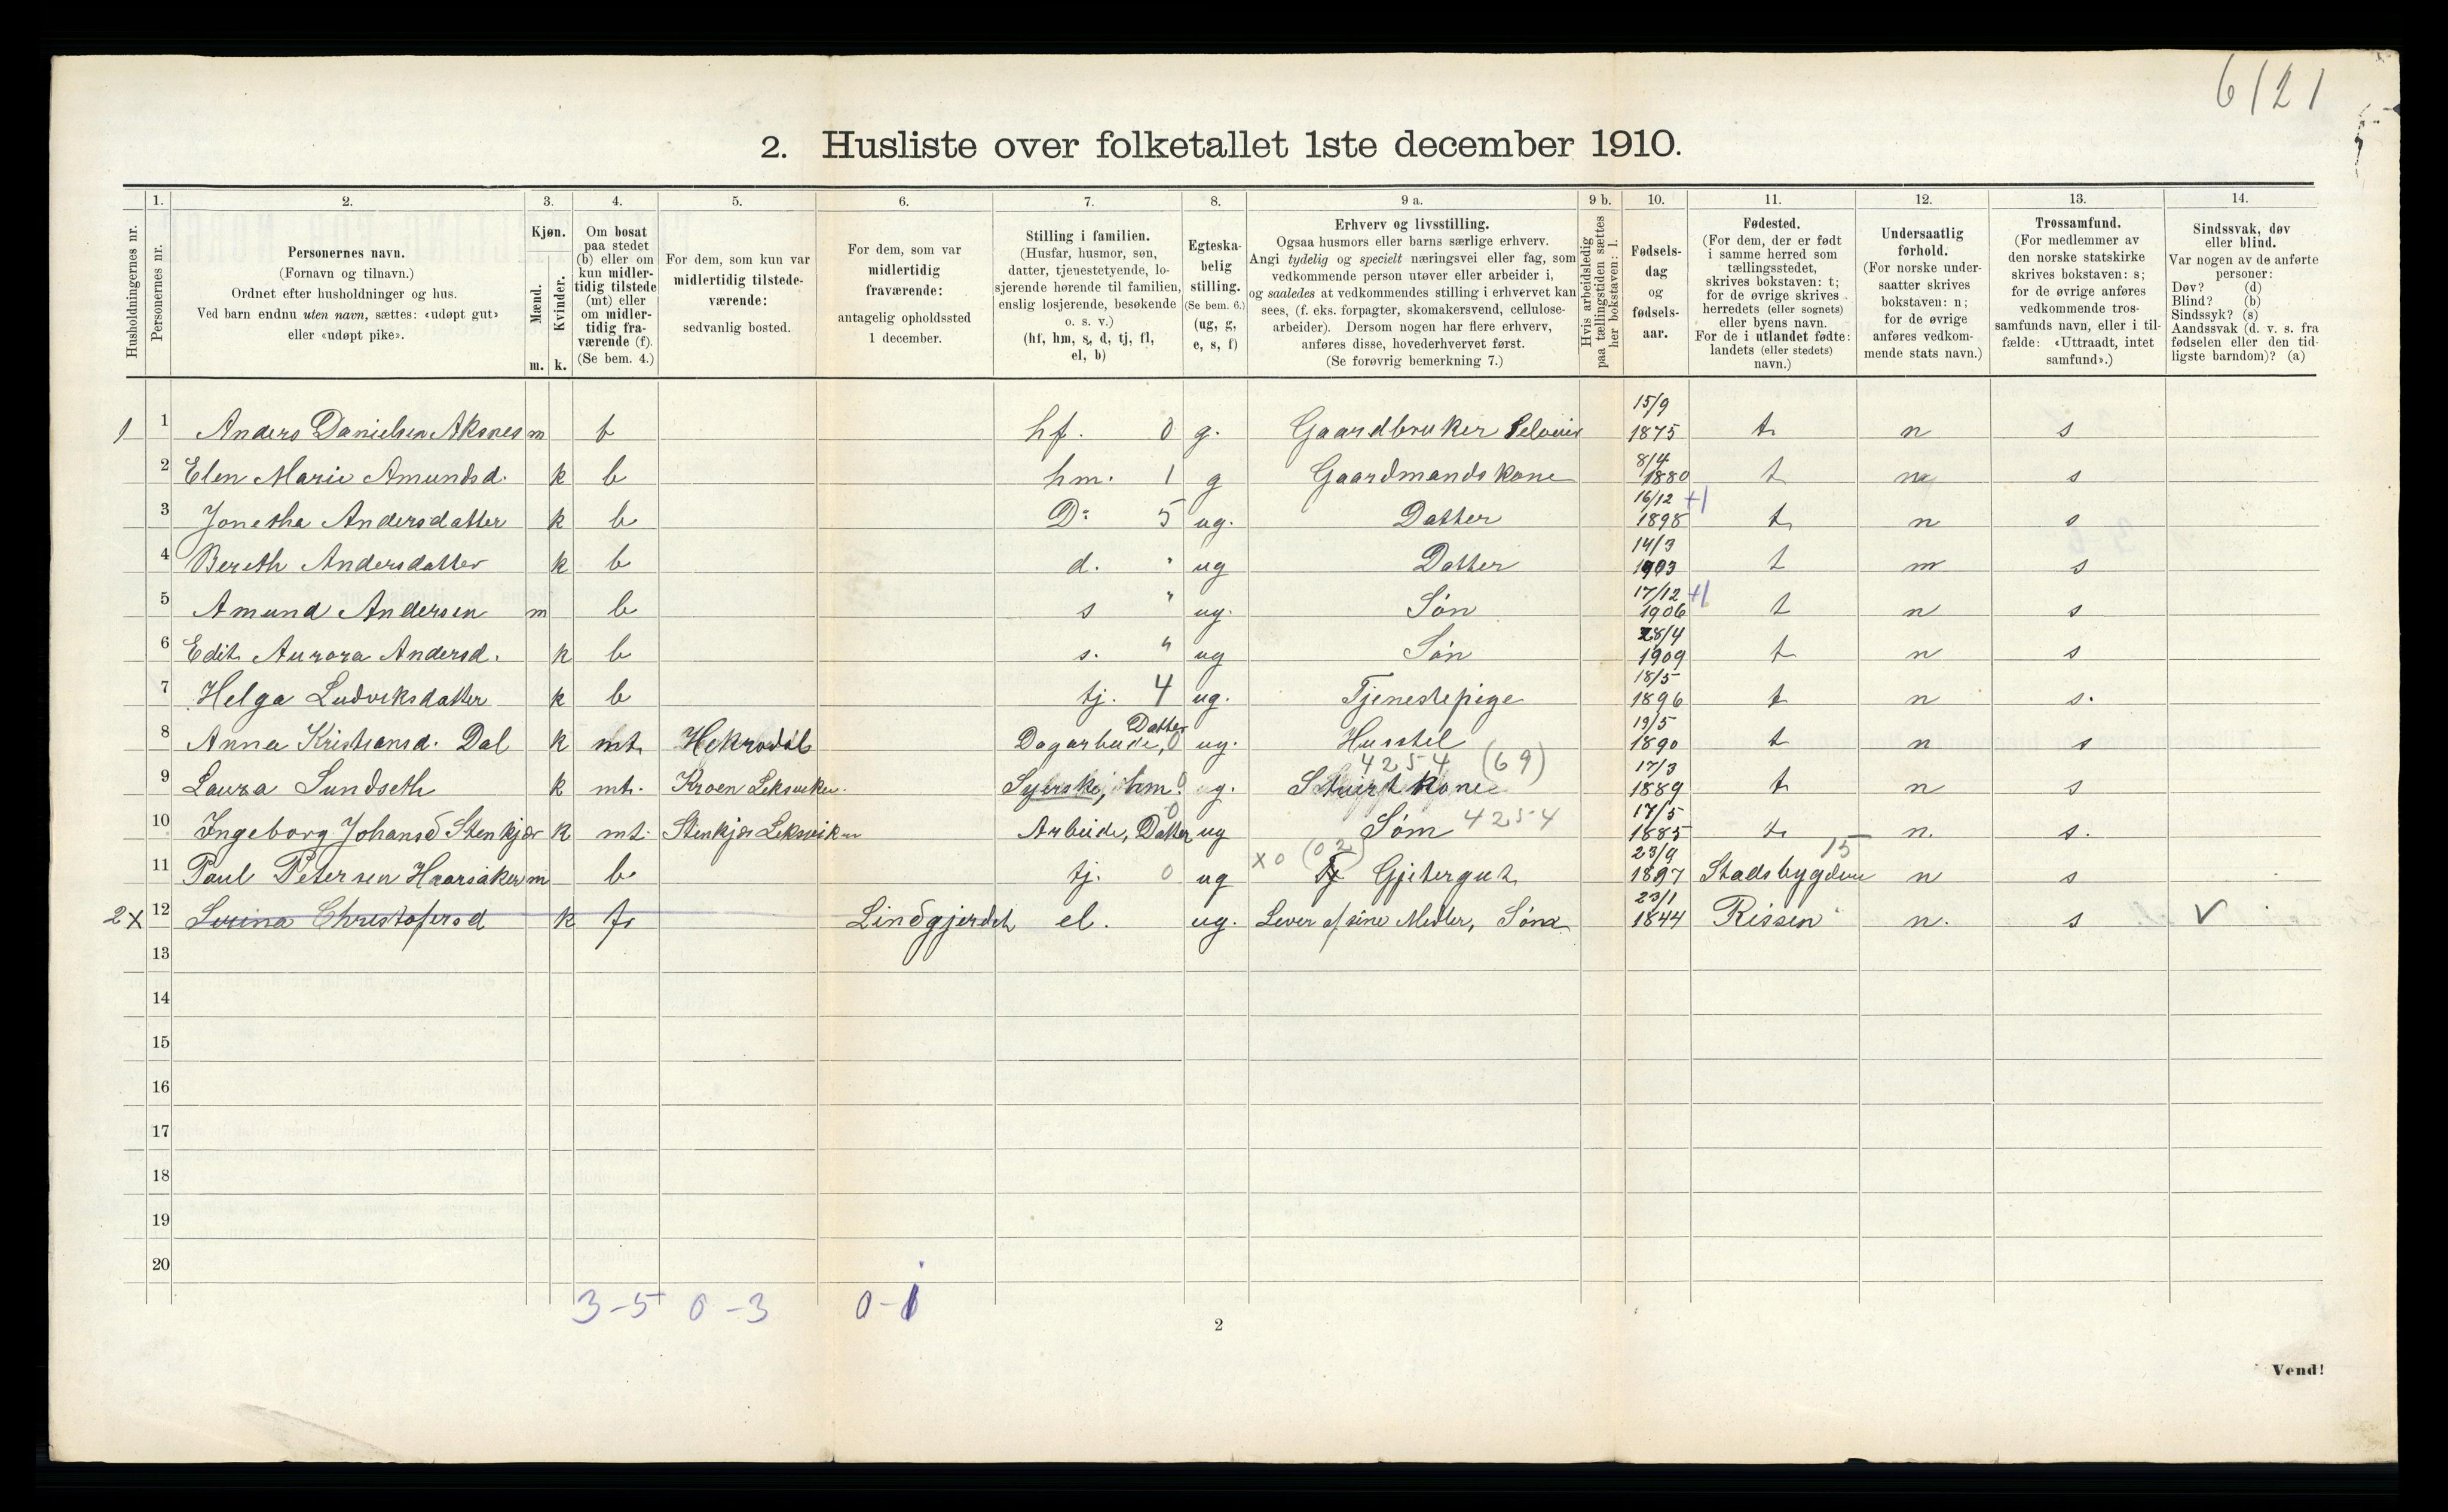 6121
2. Husliste over folketallet 1ste december 1910.
Husholdningernes nr.
1. Personernes nr.
2. Personernes navn.
(Fornavn og tilnavn.)
Ordnet efter husholdninger og hus.
Ved barn endnu uten navn, sættes: «udøpt gut»
eller «udøpt pike».
3. Kjøn.
Mænd. Kvinder.
m. k.
4. Om bosat
paa stedet
(b) eller om
kun midler-
tidig tilstede
(mt) eller
om midler-
tidig fra-
værende (f).
(Se bem. 4.)
5. For dem, som kun var
midlertidig tilstede-
værende:
sedvanlig bosted.
6. For dem, som var
midlertidig
fraværende:
antagelig opholdssted
1 december.
7. Stilling i familien.
(Husfar, husmor, søn,
datter, tjenestetyende, lo-
sjerende hørende til familien,
enslig losjerende, besøkende
o. s. v.)
(hf, hm, s, d, tj, fl,
el, b)
8. Egteska-
belig
stilling.
(Se bem. 6.)
(ug, g,
e, s, f)
9 a. Erhverv og livsstilling.
Ogsaa husmors eller barns særlige erhverv.
Angi tydelig og specielt næringsvei eller fag, som
vedkommende person utøver eller arbeider i,
og saaledes at vedkommendes stilling i erhvervet kan
sees, (f. eks. forpagter, skomakersvend, cellulose-
arbeider). Dersom nogen har flere erhverv,
anføres disse, hovederhvervet først.
(Se forøvrig bemerkning 7.)
9 b. Hvis arbeidsledig
paa tællingstiden sættes
her bokstaven: l.
10. Fødsels-
dag
og
fødsels-
aar.
11. Fødested.
(For dem, der er født
i samme herred som
tællingsstedet,
skrives bokstaven: t;
for de øvrige skrives
herredets (eller sognets)
eller byens navn.
For de i utlandet fødte:
landets (eller stedets)
navn.)
12. Undersaatlig
forhold.
(For norske under-
saatter skrives
bokstaven: n;
for de øvrige
anføres vedkom-
mende stats navn.)
13. Trossamfund.
(For medlemmer av
den norske statskirke
skrives bokstaven: s;
for de øvrige anføres
vedkommende tros-
samfunds navn, eller i til-
fælde: «Uttraadt, intet
samfund».)
14. Sindssvak, døv
eller blind.
Var nogen av de anførte
personer:
Døv? (d)
Blind? (b)
Sindssyk? (s)
Aandssvak (d. v. s. fra
fødselen eller den tid-
ligste barndom)? (a)
1 1 Anders Danielsen Aksnes m b hf. 0 g. Gaardbruker Seloeier 15/9 1875 t n s
2 Elen Marie Amundsd. k b hm. 1 g Gaardmandskone 8/4 1880 t n s
3 Jonetha Andersdatter k b D: 5 ug. Datter 16/12 1898 +1 t n s
4 Bereth Andersdatter k b d. " ug Datter 14/3 1903 t n s
5 Amund Andersen m b s " ug. Søn 17/12 1906 +1 t n s
6 Edit Aurora Andersd. k b s. " ug Søn 28/4 1909 t n s
7 Helga Ludviksdatter k b tj. 4 ug. Tjenestepige 18/5 1896 t n s.
8 Anna Kristiansd. Dal k mt. Dagarbeide, Datter 0 ug. Husstel 19/5 1890 t n s
9 Laura Sundseth k mt. Kroen Leksviken. Syerske, hm. 0 g. kone 4254 (69) 17/3 1889 t n s
10 Ingeborg Johansd Stenkjær k mt. Stenkjær Leksviken Arbeide, Datter 0 ug Søm 4254 17/5 1885 t n. s.
11 Paul Petersen Haarsaker m b tj. 0 ug x0 (02) Gjetergut 23/9 1897 Stadsbygden 15 n s
2 x 12 Serina Christofersd k f Lindgjerdet el. ug. Lever af sine Midler, Søm 23/1 1844 Rissen n. s V
13
14
15
16
17
18
19
20
3-5 0-3 0-1
2
Vend!